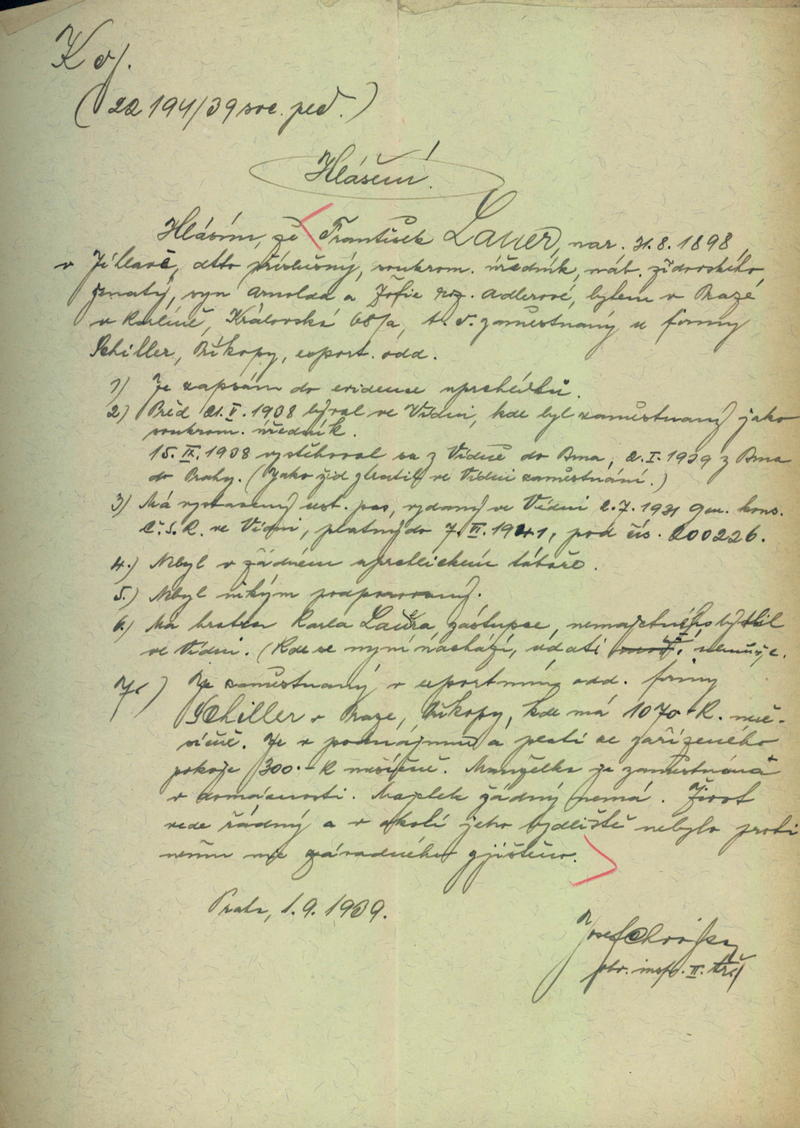 K čj.
(22 194/39 soc. péč.)
Hlášení.
Hlásím, že František Lauer, nar. 31.8.1898,
v Jihlavě, dtto příslušný, soukrom. úředník, náb. židovského,
ženatý, syn Arnolda a Žofie roz. Adlerové, bytem v Praze
v Karlíně, Královská 68/a, t. č. zaměstnaný u firmy
Schiller, Příkopy, export. odd.
1) Je zapsán do evidence uprchlíků.
2) Před 21.V.1938 býval ve Vídni, kde byl zaměstnaný jako
soukrom. úředník.
15.IX.1938 vystěhoval se z Vídně do Brna, 2.I.1939 z Brna
do Prahy. (Jako žid ztratil ve Vídni zaměstnání.)
3) Má vystavený cest. pas, vydaný ve Vídni 2.7.1931 gen. kons.
Č.S.R. ve Vídni, platný do 7.II.1941, pod čís. 200226.
4.) Nebyl v žádném uprchlickém táboře.
5.) Nebyl nikým podporovaný.
6.) Má bratra Karla Laura zástupce, nemajetného bytbil
ve Vídni. (Kde se nyní nachází, udati nemůže.
7.) Je zaměstnaný v exportním odd. firmy
Schiller v Praze, Příkopy, kde má 1070 K. mě-
síčně. Je v podnájmu a platí ze zařízeného
pokoje 300.- K měsíčně. Manželka je zaměstnána
v domácnosti. Majetek žádný nemá. Život
vede řádný a v okolí jeho bydliště nebylo proti
němu nic závadného zjištěno.
Praha, 1.9.1939.
Josef
obv. insp. II. tř.